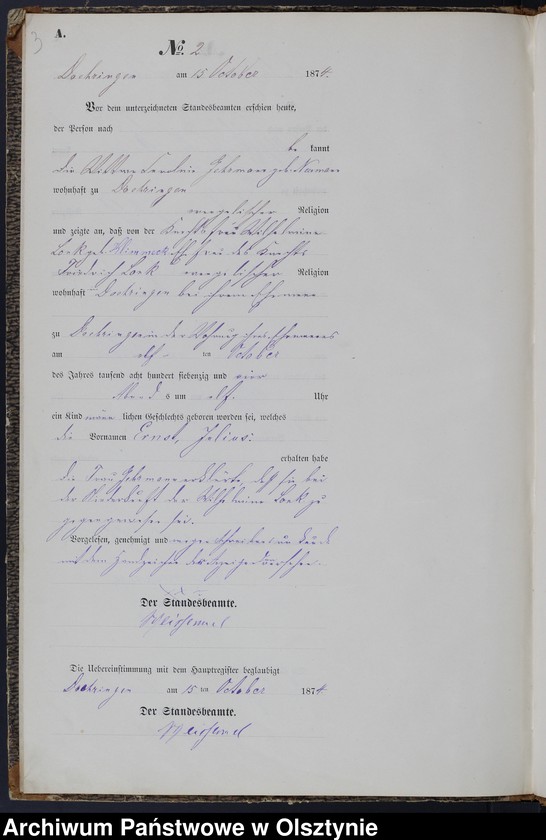 3
A.
No. 2
Doehringen am 15 October 1874.
Vor dem unterzeichneten Standesbeamten erschien heute,
der Person nach
be kannt
die Wittwe geb.
wohnhaft zu Doehringen
evangelischer Religion
und zeigte an, daß von der Knechtsfrau Wilhelmine
geb. Ehefrau des Knechts
Friedrich evangelischer Religion
wohnhaft Doehringen bei ihrem Ehemann
zu Doehringen in der Wohnung ihres Ehemannes
am ten October
des Jahres tausend acht hundert siebenzig und vier
Abends um elf Uhr
ein Kind männlichen Geschlechts geboren worden sei, welches
die Vornamen Ernst, Julius
erhalten habe
die Frau erklärte, daß sie bei
der Niederkunft der Wilhelmine zu
gegen gewesen sei.
Vorgelesen, genehmigt und wegen Schreibensunkunde
mit dem Handzeichen versehen.
Der Standesbeamte.
Die Uebereinstimmung mit dem Hauptregister beglaubigt
Doehringen am 15 ten October 1874
Der Standesbeamte.
Archiwum Państwowe w Olsztynie